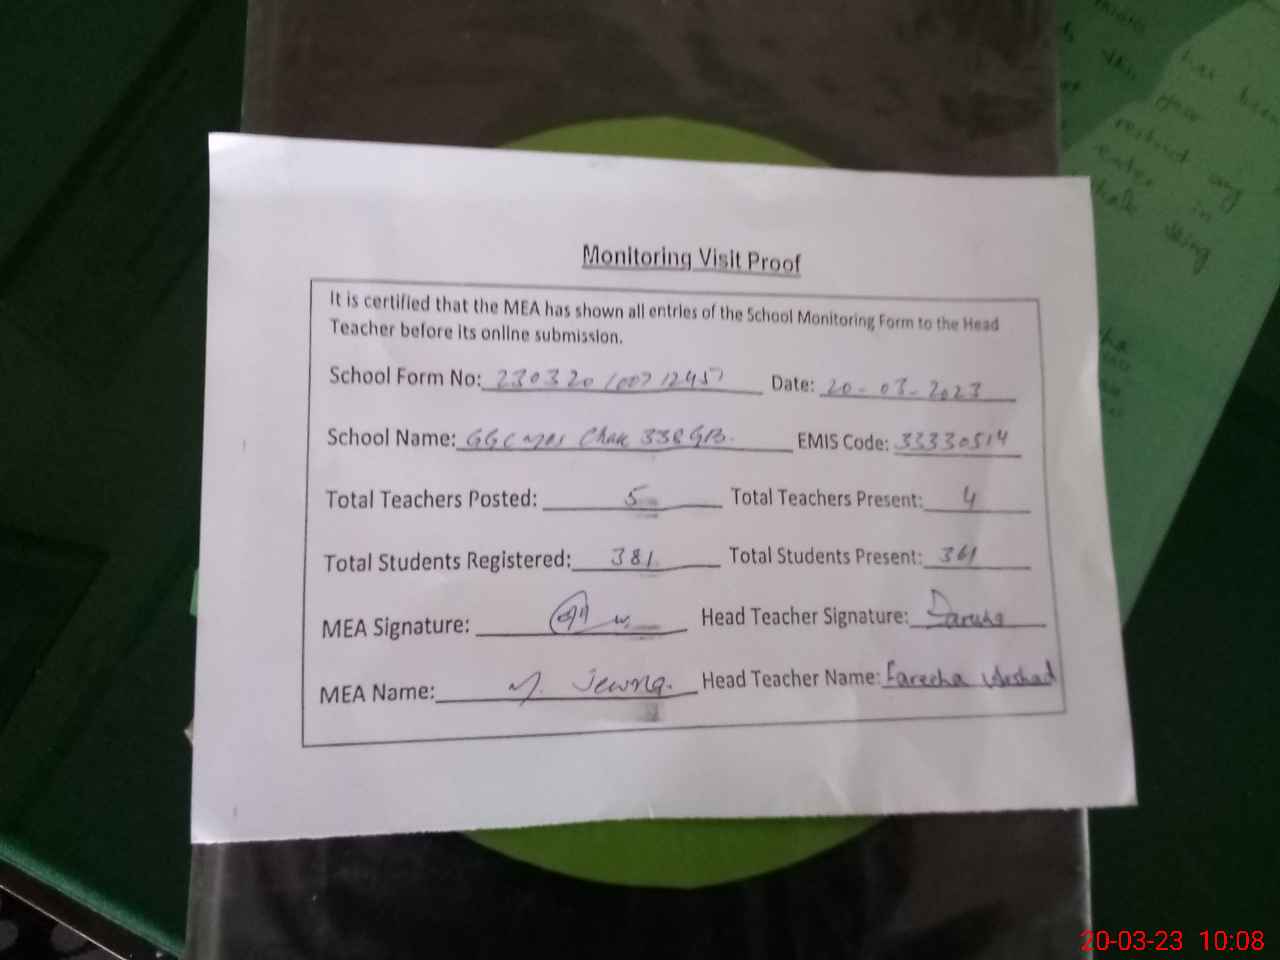 Monitoring Visit Proof
It is certified that the MEA has shown all entries of the School Monitoring Form to the Head
Teacher before its online submission.
School Form No: Date: 20-03-2023
School Name: Chak GB. EMIS Code: 33330514
Total Teachers Posted: 5 Total Teachers Present: 4
Total Students Registered: 381 Total Students Present: 361
MEA Signature: Head Teacher Signature:
MEA Name: M. Head Teacher Name: Fareeha Arshad
20-03-23 10:08